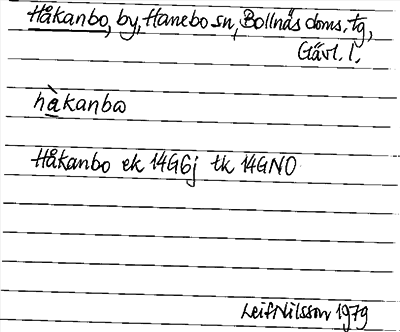 Håkanbo, by, Hanebo sn, Bollnäs doms. tg,
Gävl. l.
hàkanbω
Håkanbo ek 14G6j tk 14GNO
Leif Nilsson 1979